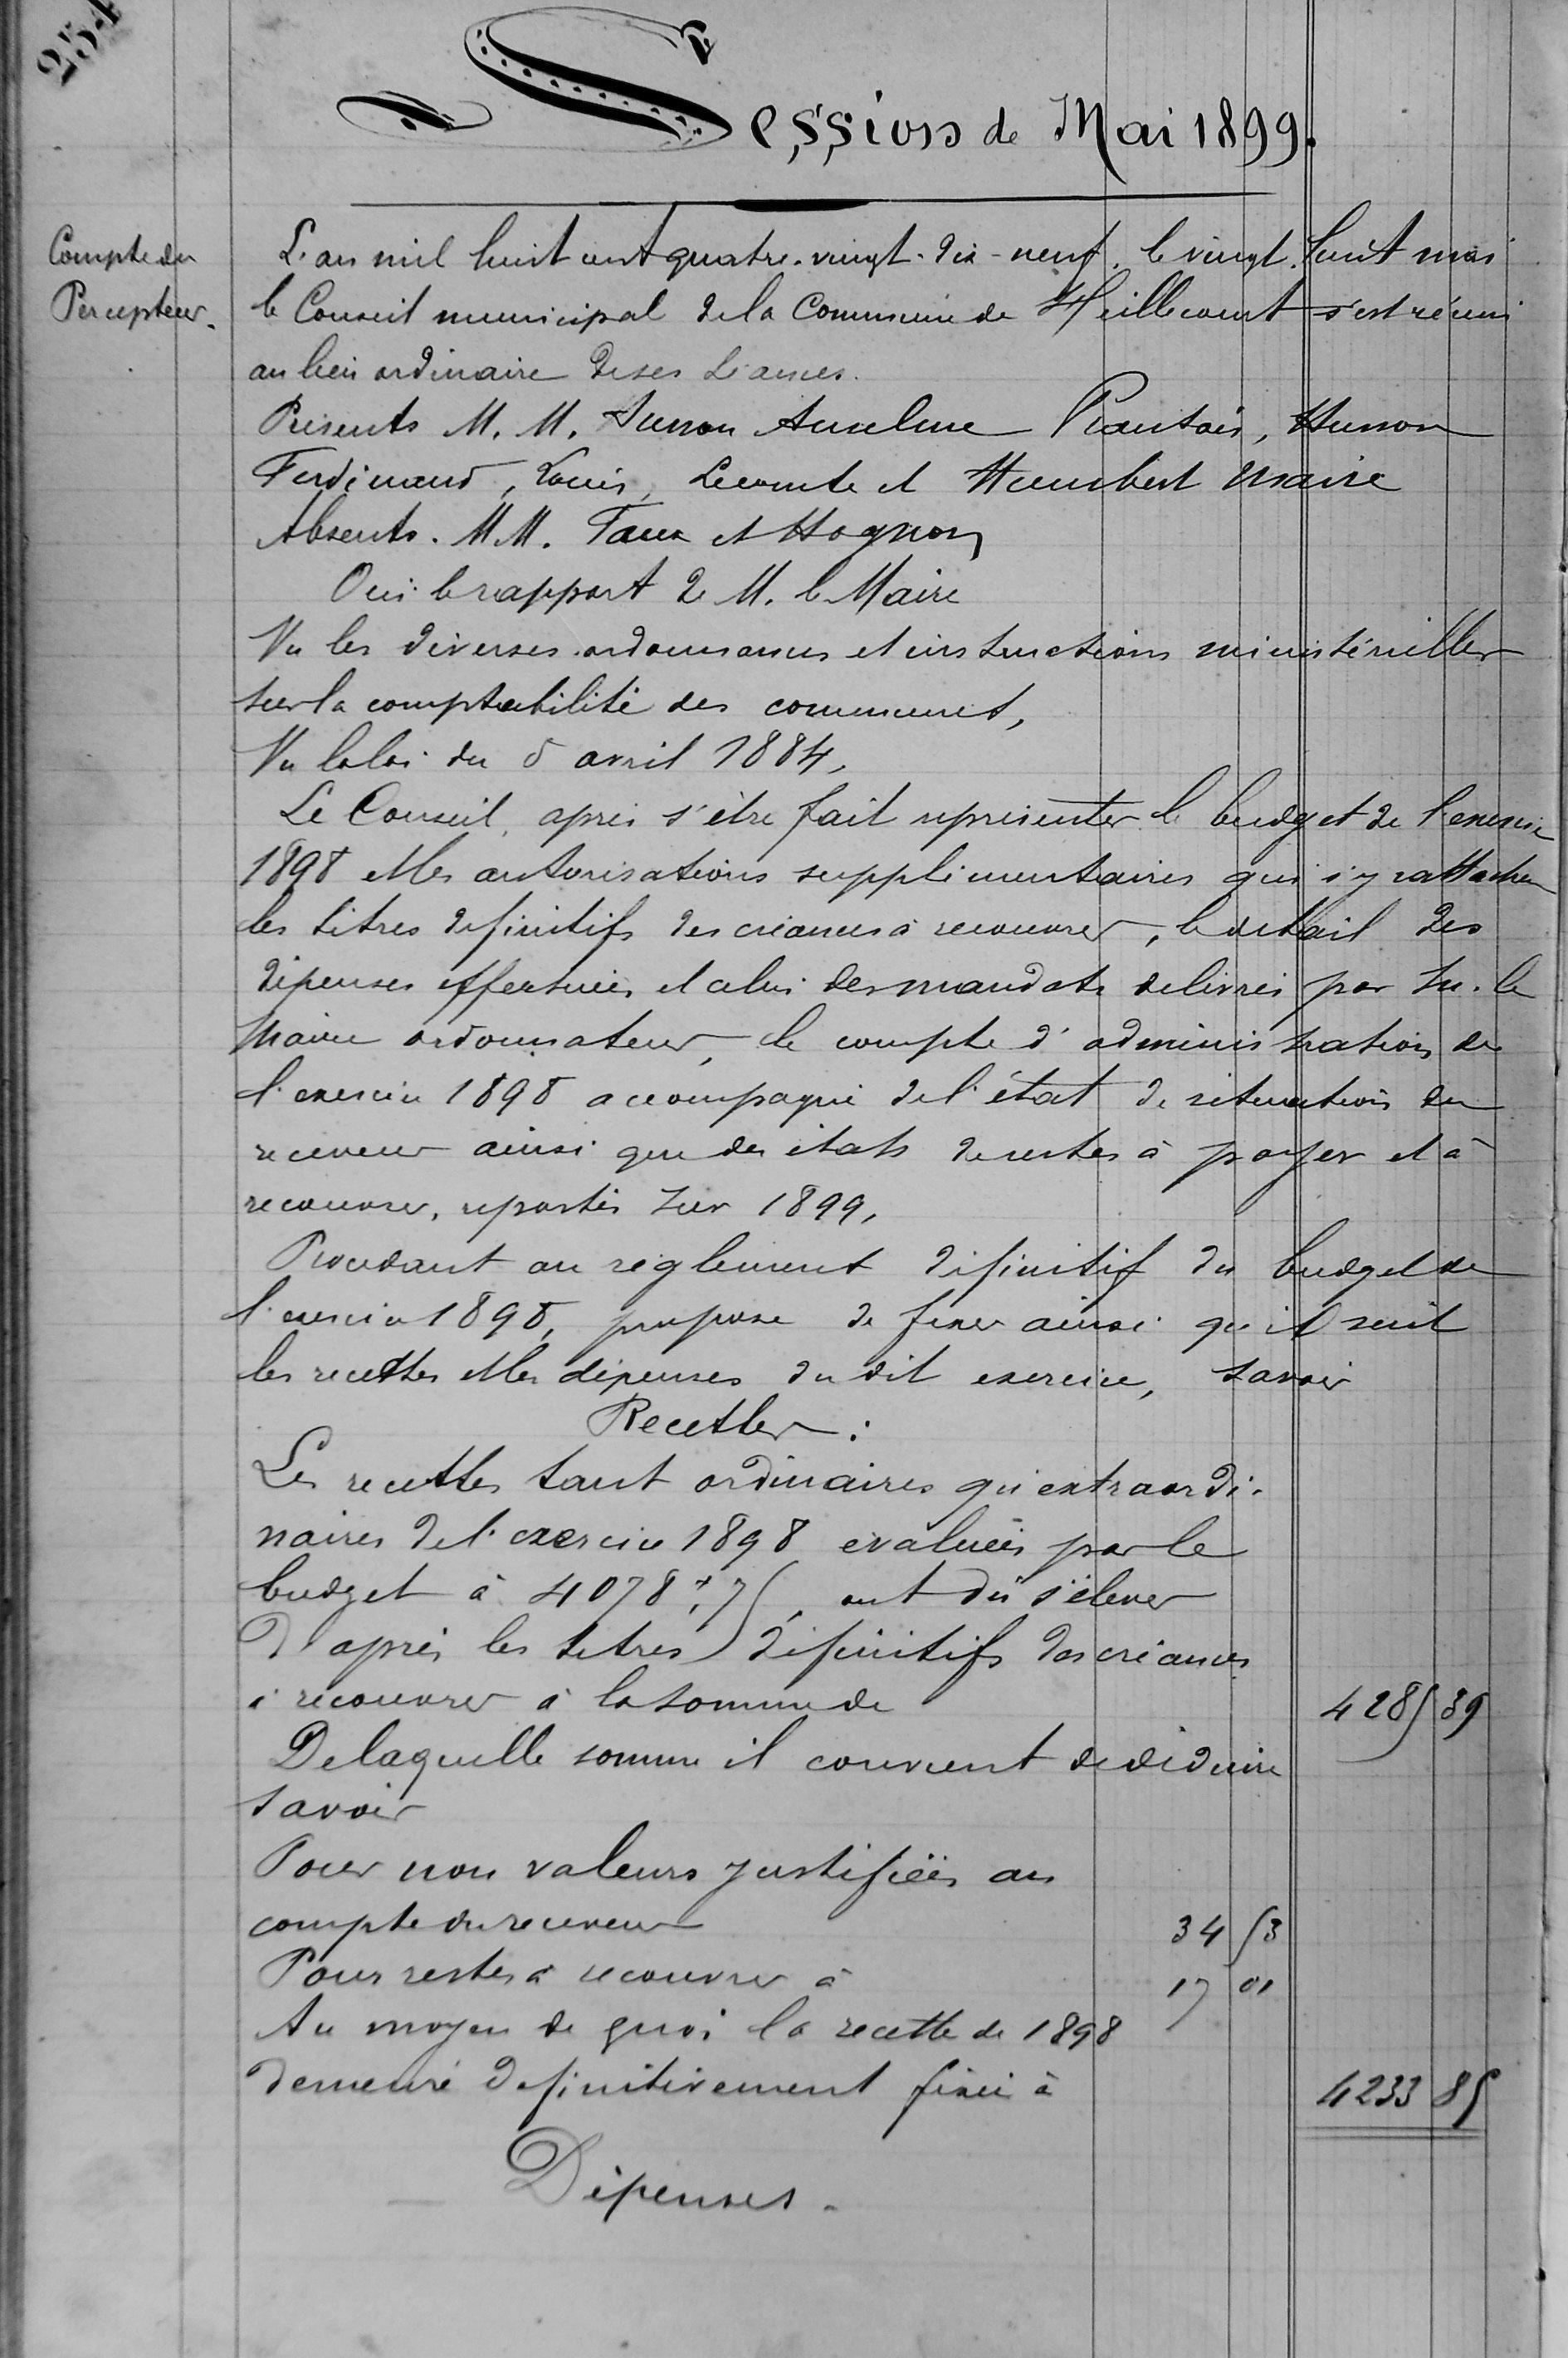 254
Session de Mai 1899.
Compte du
Percepteur.
L'an mil huit cent quatre-vingt-dix-neuf, le vingt huit mai
le Conseil municipal de la Commune de Heillecourt s'est réuni
au lieu ordinaire de ses séances.
Présents M. M. Husson Anselme Plantois, Husson
Ferdinand, Louis, Lecomte et Humbert Maire
Absents. M M. Taux et Hognon
Oui le rapport de M. le Maire
Vu les diverses ordonnances et instructions ministérielles
sur la comptabilité des communes,
Vu la loi du 5 avril 1884,
Le Conseil, après s'être fait représenter le budget de l'exercice
1898 et les autorisations supplémentaires qui s'y rattachen
les titres définitifs des créances à recouvrer, le détail des
dépenses effectuées et celui des mandats delivrés par M. le
Maire ordonnateur, le compte d'administration de
l'exercice 1898 accompagné de l'état de situation du
receveur ainsi que des états de restes à payer et à
recouvrer, reportés sur 1899,
Procédant au règlement définitif du budget de
l'exercice 1898, propose de fixer ainsi qu'il suit
les recettes et les dépenses du dit exercice, savoir
Recettes :
Les recettes tant ordinaires qu'extraordi-
naires de l'exercice 1898 évaluées par le
budget à 4078f,75, ont dû s'élever
D'après les titres définitifs des créances
à recouvrer à la somme de 4285 39
De laquelle somme il convient de déduire
savoir
Pour non valeurs justifiées au
compte du receveur 34 53
Pour restes à recouvrer à 17 01
Au moyen de quoi la recette de 1898
demeure définitivement fixée à 4233 85
Dépenses.